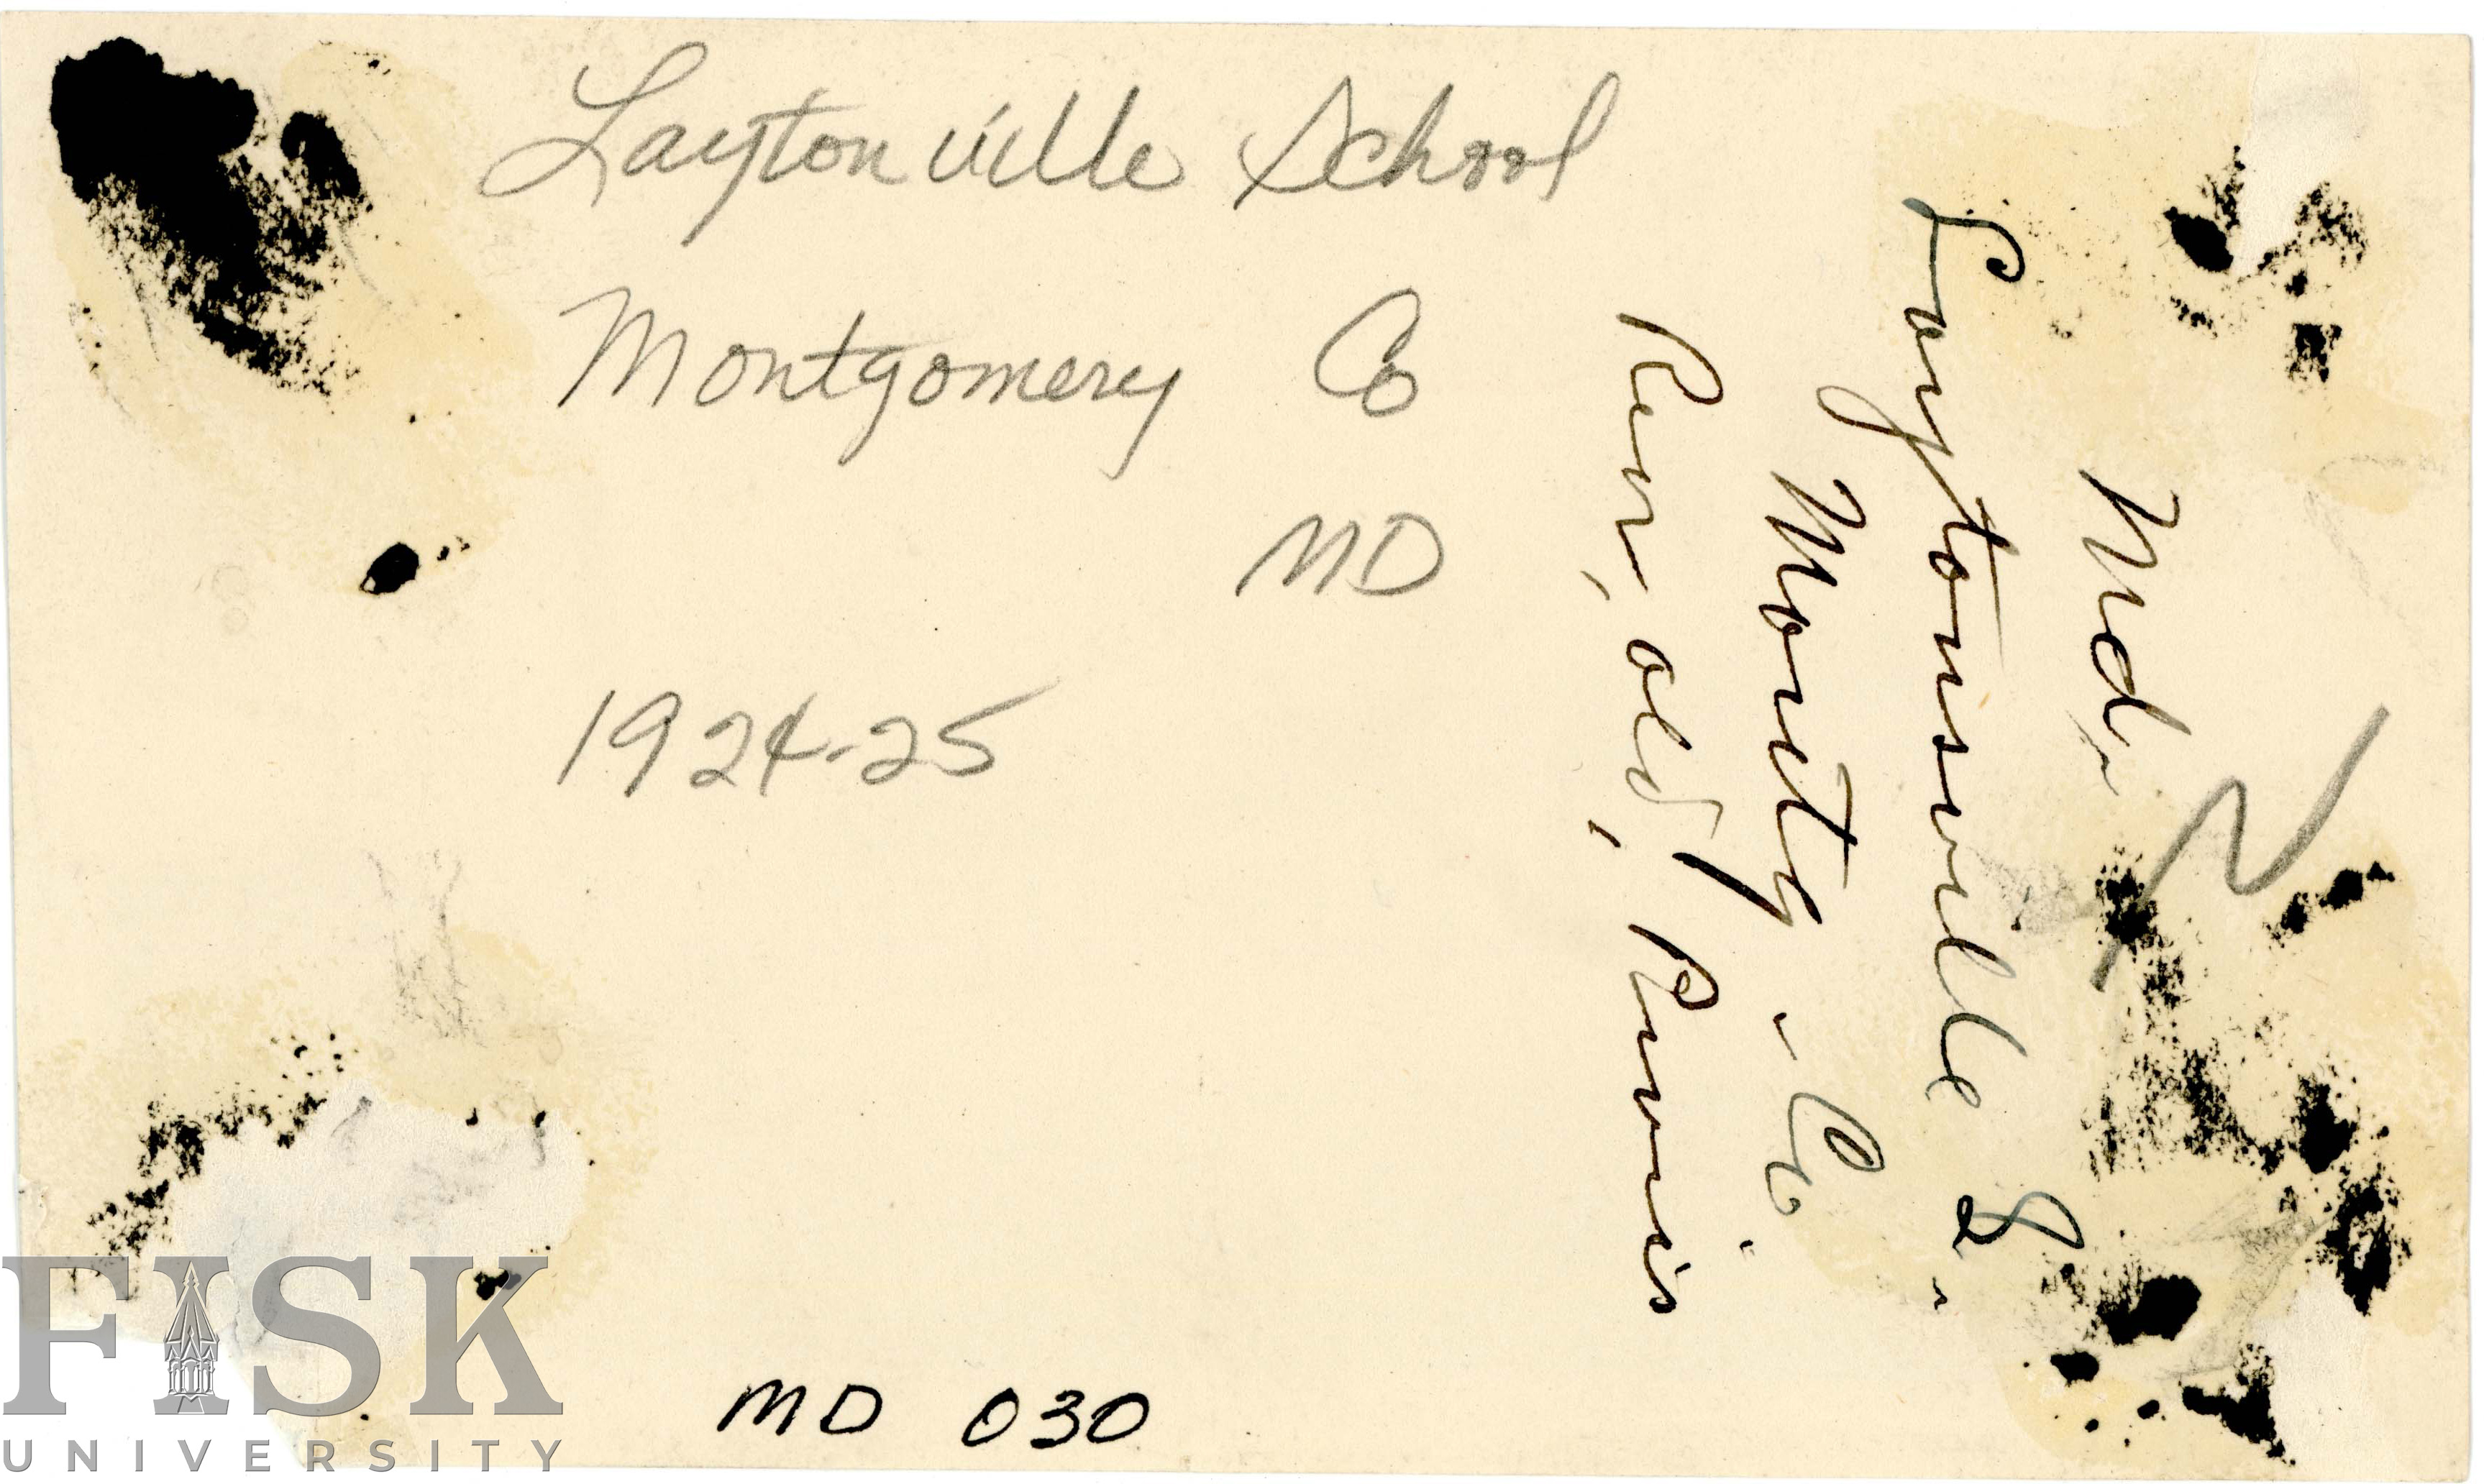 Laytonville School
Montgomery Co
MD
1924-25
MD 030
Md.
Laytonsville S.
Montg. Co.
old,
FISK
UNIVERSITY